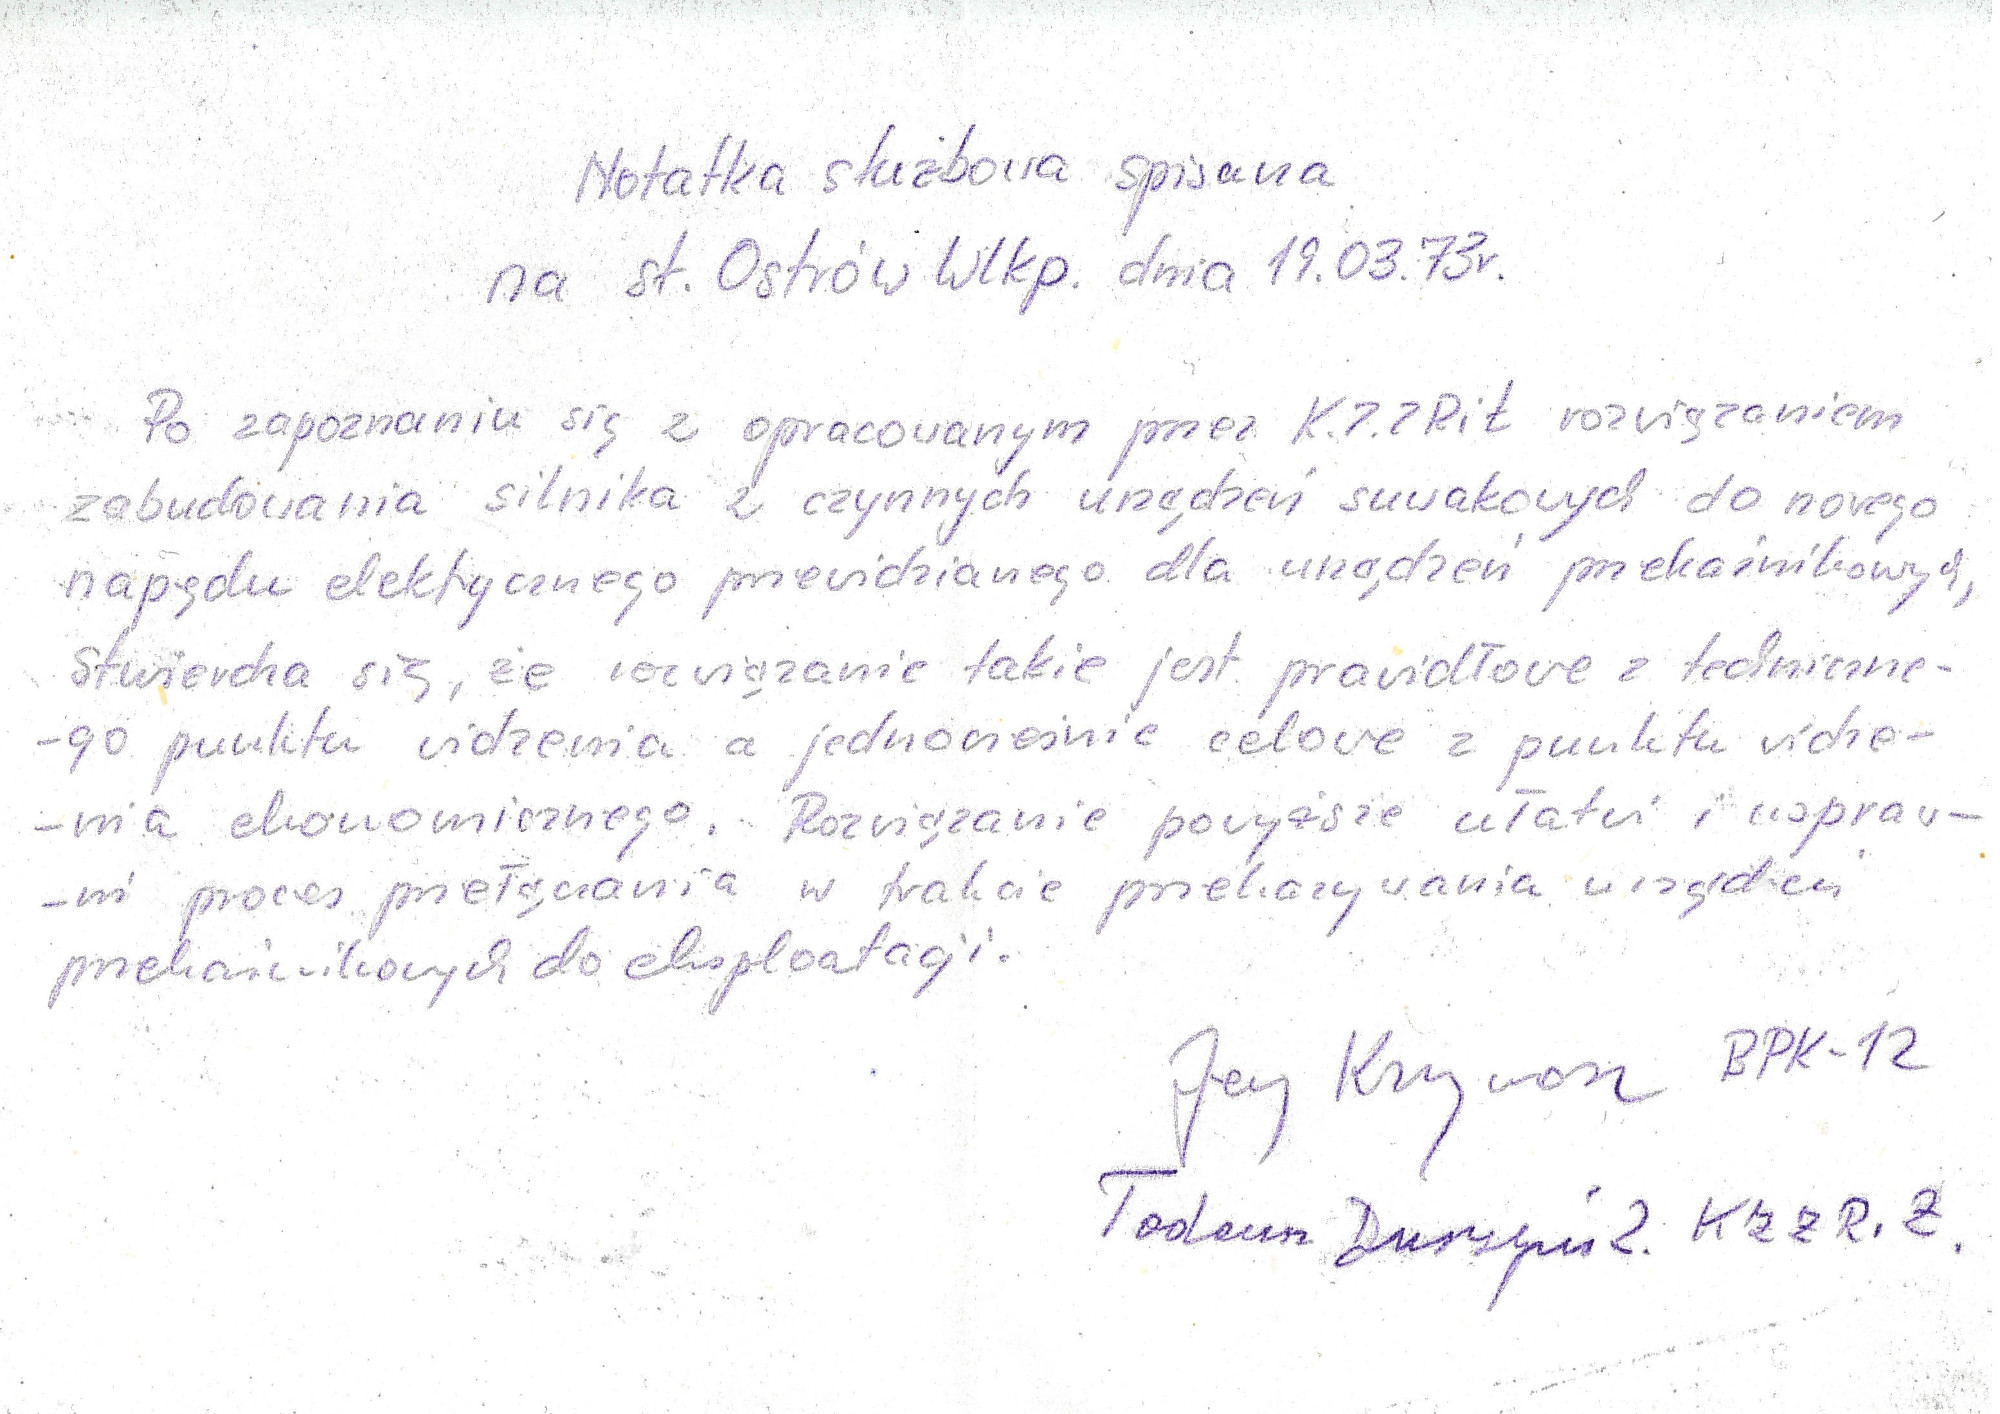 Notatka służbowa spisana
na st. Ostrów Wlkp. dnia 19.03.73r.
Po zapoznaniu się z opracowanym przez K.Z.ZRiŁ rozwiązaniem
zabudowania silnika z czynnych urządzeń suwakowych do nowego
napędu elektrycznego przewidzianego dla urządzeń przekaźnikowych,
stwierdza się, że rozwiązanie takie jest prawidłowe z techniczne-
-go punktu widzenia a jednocześnie celowe z punktu widze-
-nia ekonomicznego. Rozwiązanie powyższe ułatwi i uspraw-
-ni proces przełączania w trakcie przekazywania urządzeń
przekaźnikowych do eksploatacji.
Jerzy Krzywosz BPK-12
Tadeusz KZZR.Ł.